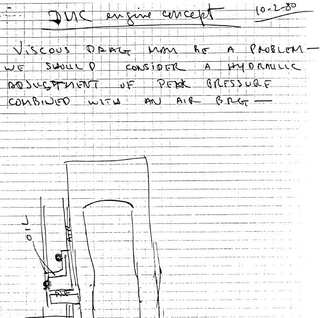 DMC engine concept 10-2-80
VISCOUS DRAG MAY BE A PROBLEM—
WE SHOULD CONSIDER A HYDRAULIC
ADJUSTMENT OF PEAK PRESSURE
COMBINED WITH AN AIR BRG—
OIL
AIR